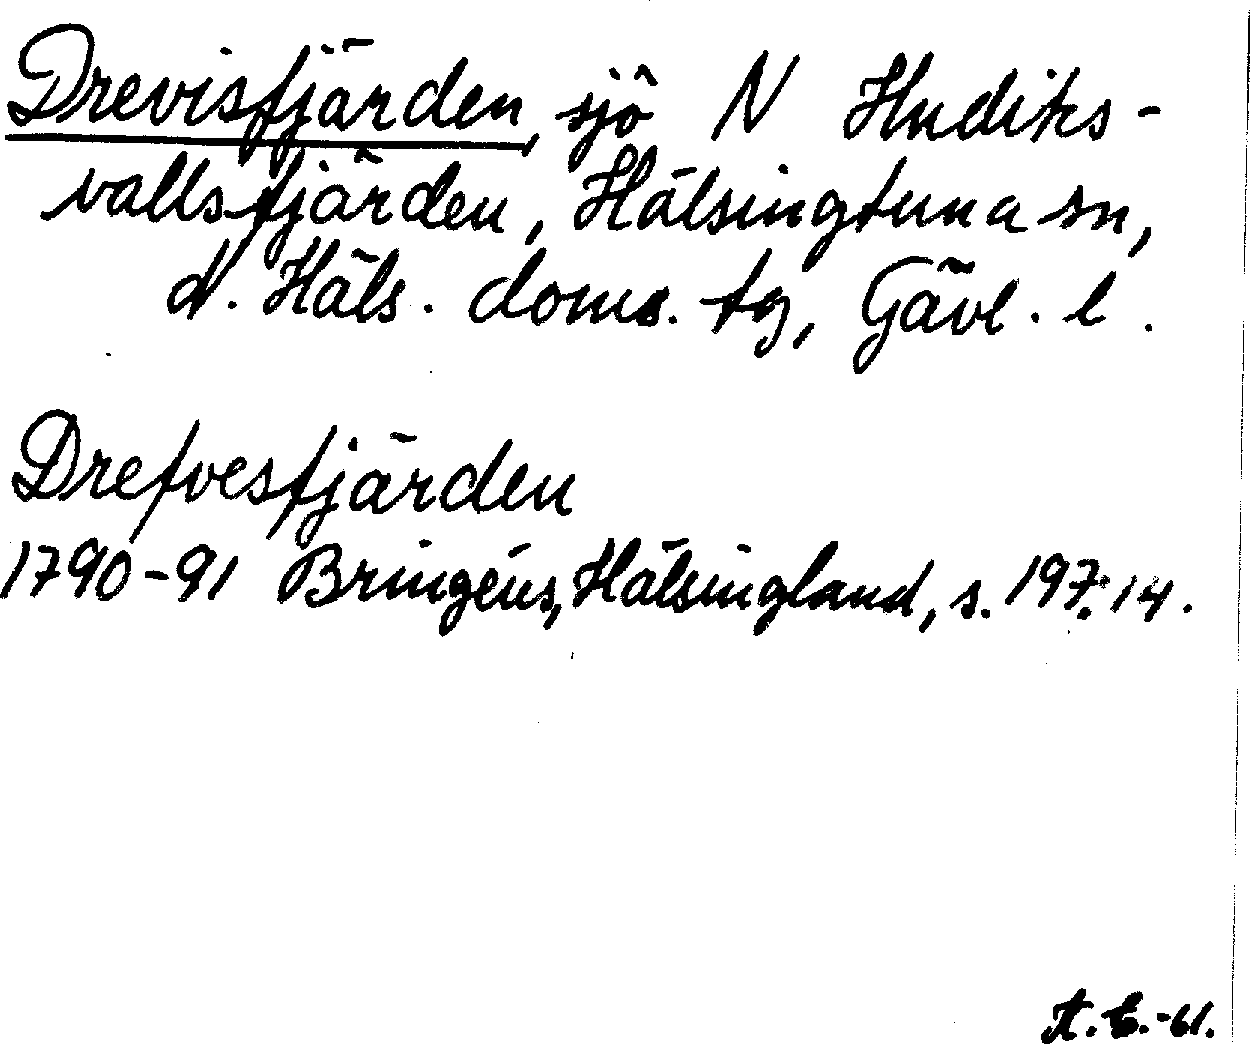 Drevisfjärden, sjö N Hudiks-
vallsfjärden, Hälsingtuna sn,
N. Häls. doms. tg, Gävl. l.
Drefvesfjärden
1790-91 Bringéus, Hälsingland, s. 197:14.
-61.